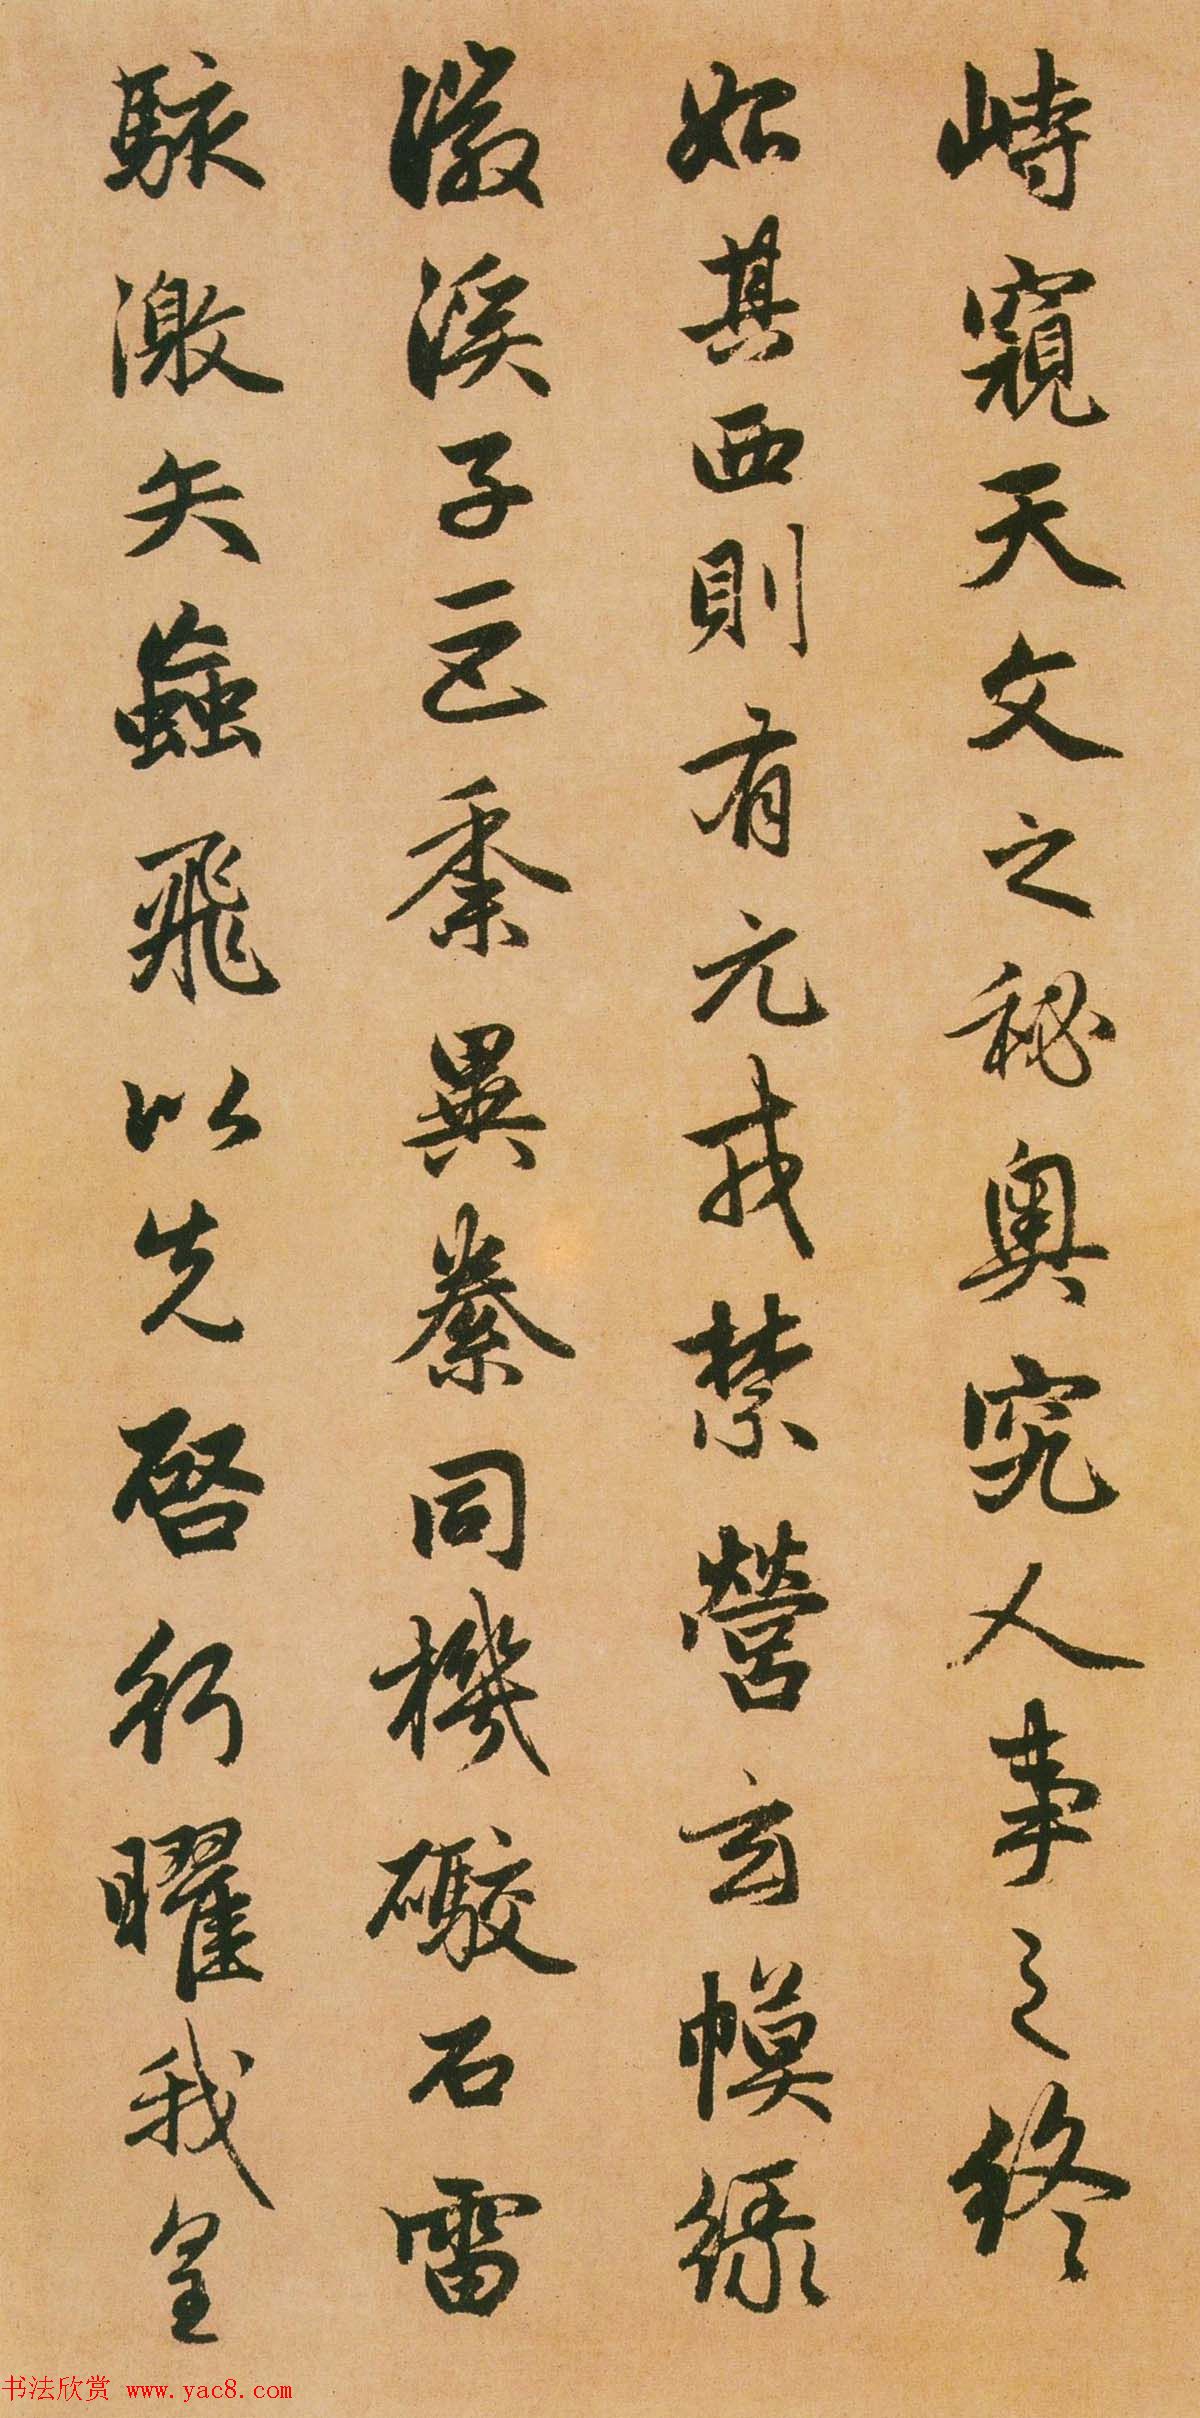 峙窺天文之秘奧究人事之終
始其西則有元戎禁營玄幙緑
徽溪子巨黍異絭同機礮石雷
駭激矢蝱飛以先啓行曜我皇
书法欣赏 www.yac8.com